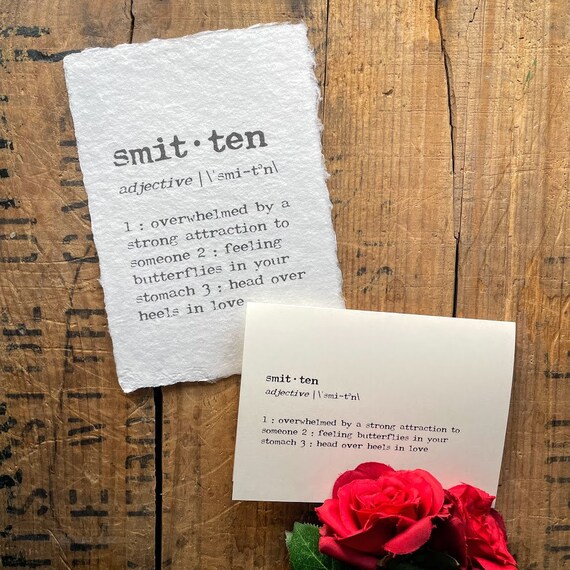 smit·ten
adjective | \ˈsmi-tᵊn\
1 : overwhelmed by a
strong attraction to
someone 2 : feeling
butterflies in your
stomach 3 : head over
heels in love
smit·ten
adjective |\ˈsmi-tᵊn\
1 : overwhelmed by a strong attraction to
someone 2 : feeling butterflies in your
stomach 3 : head over heels in love